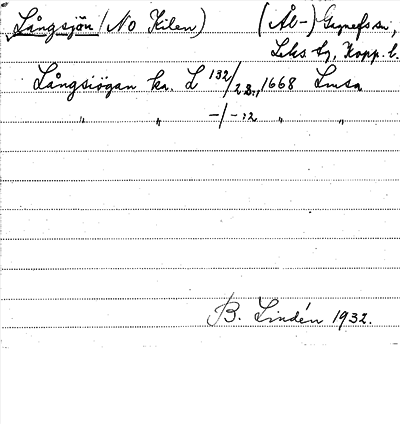 Långsjön (No Kilen) (Ål-) Gagnefs sn,
Leks tg, Kopp. l.
Långsiögan ka. L 132/2 1668 Lmsa
" " -/-:2 " "
B. Lindén 1932.